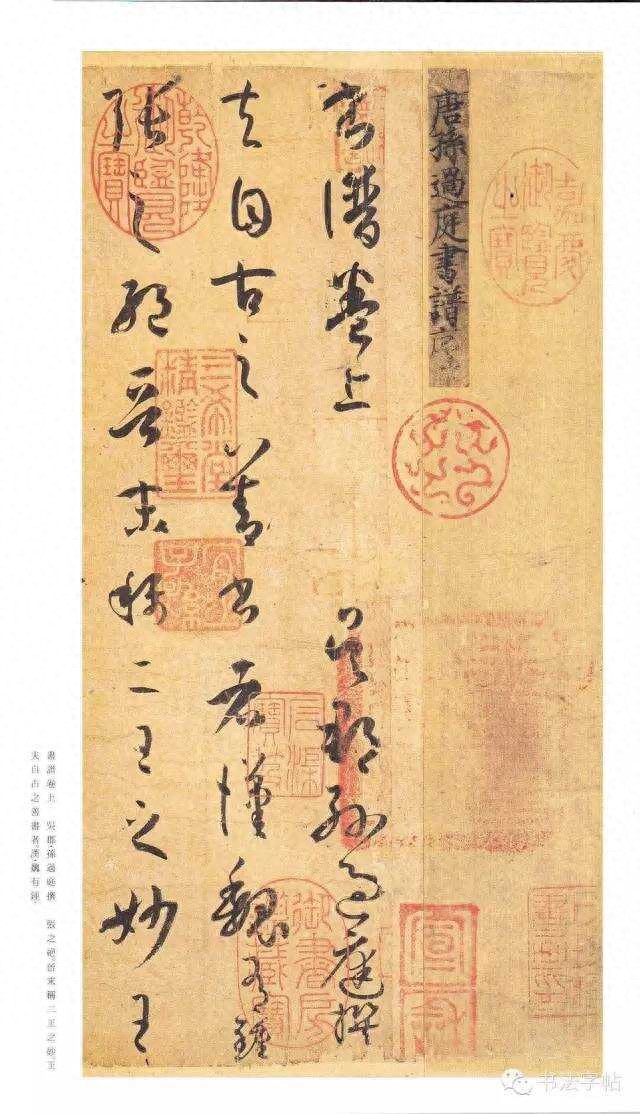 唐孫過庭書譜序
書譜卷上 吳郡孫過庭撰
夫自古之善書者漢魏有鍾
張之絕晉末稱二王之妙王
嘉慶御覽之寶
乾隆御覽之寶
三希堂精鑑璽
宜子孫
御書房鑑藏寶
宣和
書譜卷上 吳郡孫過庭撰 張之絕晉末稱二王之妙王
夫自古之善書者漢魏有鍾
书法字帖